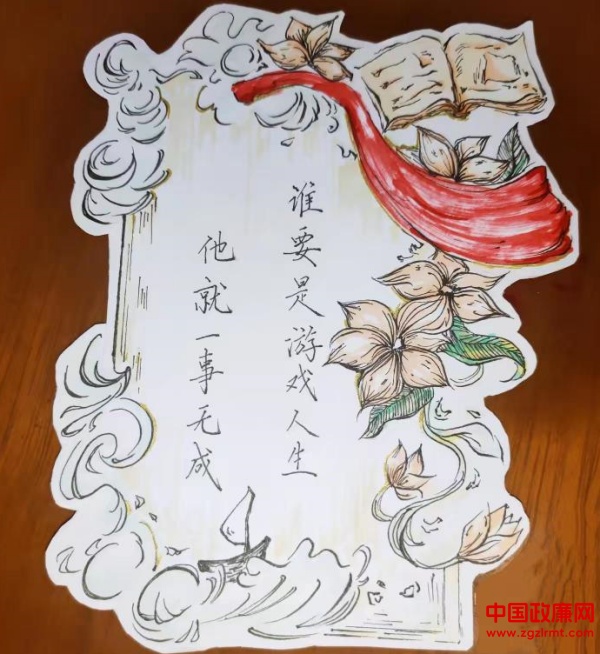 谁要是游戏人生
他就一事无成
中国政廉网
www.zgzlrmt.com